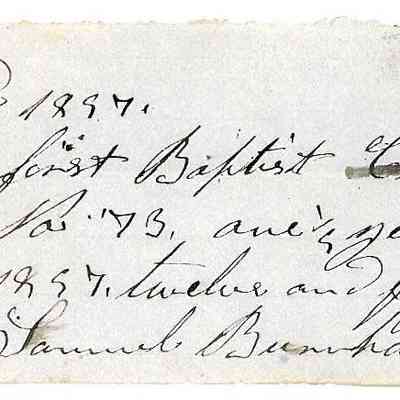 1897.
first Baptist C
No. 73. one ½ ye
1897. twelve and f
Samuel Burnha